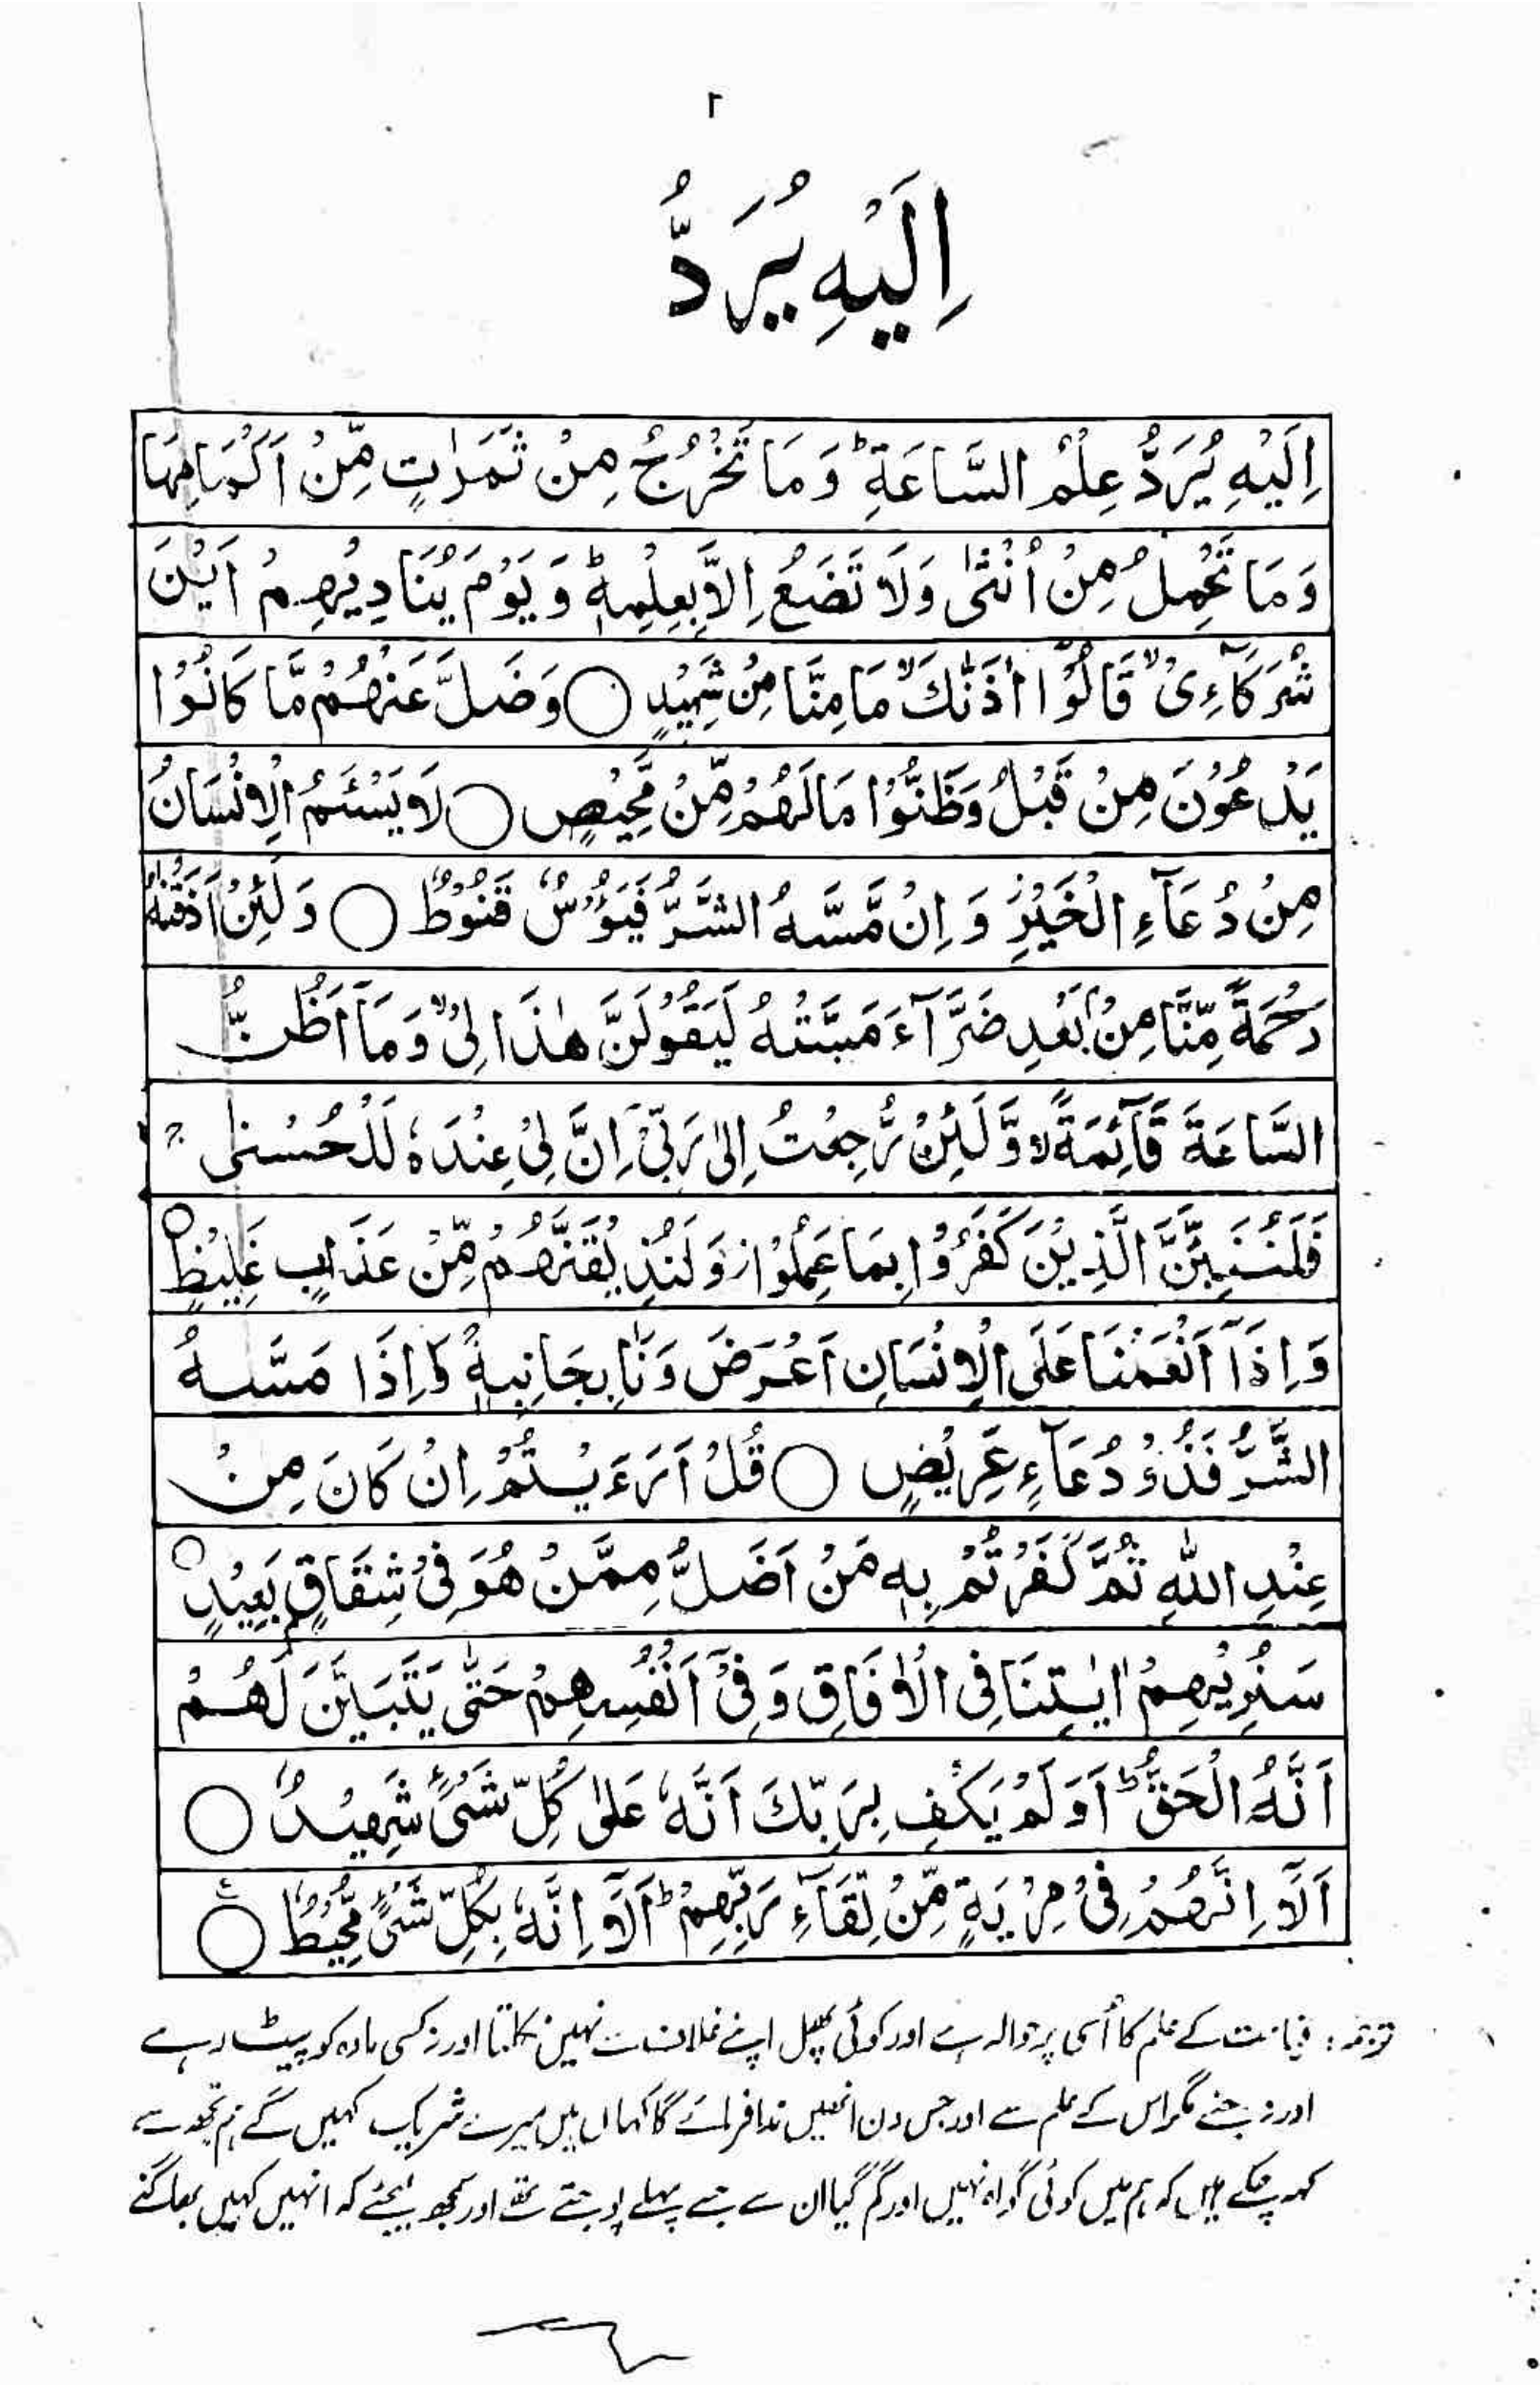 ۲
اِلَیْهِ یُرَدُّ
اِلَیْهِ یُرَدُّ عِلْمُ السَّاعَةِ ؕ وَ مَا تَخْرُجُ مِنْ ثَمَرٰتٍ مِّنْ اَكْمَامِهَا
وَ مَا تَحْمِلُ مِنْ اُنْثٰی وَلَا تَضَعُ اِلَّا بِعِلْمِهٖ ؕ وَ یَوْمَ یُنَادِیْهِمْ اَیْنَ
شُرَكَآءِیْ ۙ قَالُوْۤا اٰذَنّٰكَ ۙ مَا مِنَّا مِنْ شَهِیْدٍ ○ وَضَلَّ عَنْهُمْ مَّا كَانُوْا
یَدْعُوْنَ مِنْ قَبْلُ وَظَنُّوْا مَا لَهُمْ مِّنْ مَّحِیْصٍ ○ لَا یَسْئَمُ الْاِنْسَانُ
مِنْ دُعَآءِ الْخَیْرِ ؗ وَ اِنْ مَّسَّهُ الشَّرُّ فَیَؤُسٌ قَنُوْطٌ ○ وَ لَئِنْ اَذَقْنٰهُ
رَحْمَةً مِّنَّا مِنْۢ بَعْدِ ضَرَّآءَ مَسَّتْهُ لَیَقُوْلَنَّ هٰذَا لِیْ ۙ وَ مَاۤ اَظُنُّ
السَّاعَةَ قَآئِمَةً ۙ وَّ لَئِنْ رُّجِعْتُ اِلٰی رَبِّیْۤ اِنَّ لِیْ عِنْدَهٗ لَلْحُسْنٰی ۚ
فَلَنُنَبِّئَنَّ الَّذِیْنَ كَفَرُوْا بِمَا عَمِلُوْا ؗ وَلَنُذِیْقَنَّهُمْ مِّنْ عَذَابٍ غَلِیْظٍ ○
وَ اِذَاۤ اَنْعَمْنَا عَلَی الْاِنْسَانِ اَعْرَضَ وَنَاٰ بِجَانِبِهٖ ۚ وَ اِذَا مَسَّهُ
الشَّرُّ فَذُوْ دُعَآءٍ عَرِیْضٍ ○ قُلْ اَرَءَیْتُمْ اِنْ كَانَ مِنْ
عِنْدِ اللّٰهِ ثُمَّ كَفَرْتُمْ بِهٖ مَنْ اَضَلُّ مِمَّنْ هُوَ فِیْ شِقَاقٍۭ بَعِیْدٍ ○
سَنُرِیْهِمْ اٰیٰتِنَا فِی الْاٰفَاقِ وَ فِیْۤ اَنْفُسِهِمْ حَتّٰی یَتَبَیَّنَ لَهُمْ
اَنَّهُ الْحَقُّ ؕ اَوَ لَمْ یَكْفِ بِرَبِّكَ اَنَّهٗ عَلٰی كُلِّ شَیْءٍ شَهِیْدٌ ○
اَلَاۤ اِنَّهُمْ فِیْ مِرْیَةٍ مِّنْ لِّقَآءِ رَبِّهِمْ ؕ اَلَاۤ اِنَّهٗ بِكُلِّ شَیْءٍ مُّحِیْطٌ ○ ع
ترجمہ: قیامت کے علم کا اُسی پر حوالہ ہے اور کوئی پھل اپنے غلاف سے نہیں نکلتا اور نہ کسی مادہ کو پیٹ رہے
اور نہ جنے مگر اس کے علم سے اور جس دن انھیں ندا فرمائے گا کہاں ہیں میرے شریک کہیں گے ہم تجھ سے
کہہ چکے ہیں کہ ہم میں کوئی گواہ نہیں اور گم گیا ان سے جسے پہلے پوجتے تھے اور سمجھ لیجئے کہ انہیں کہیں بھاگنے